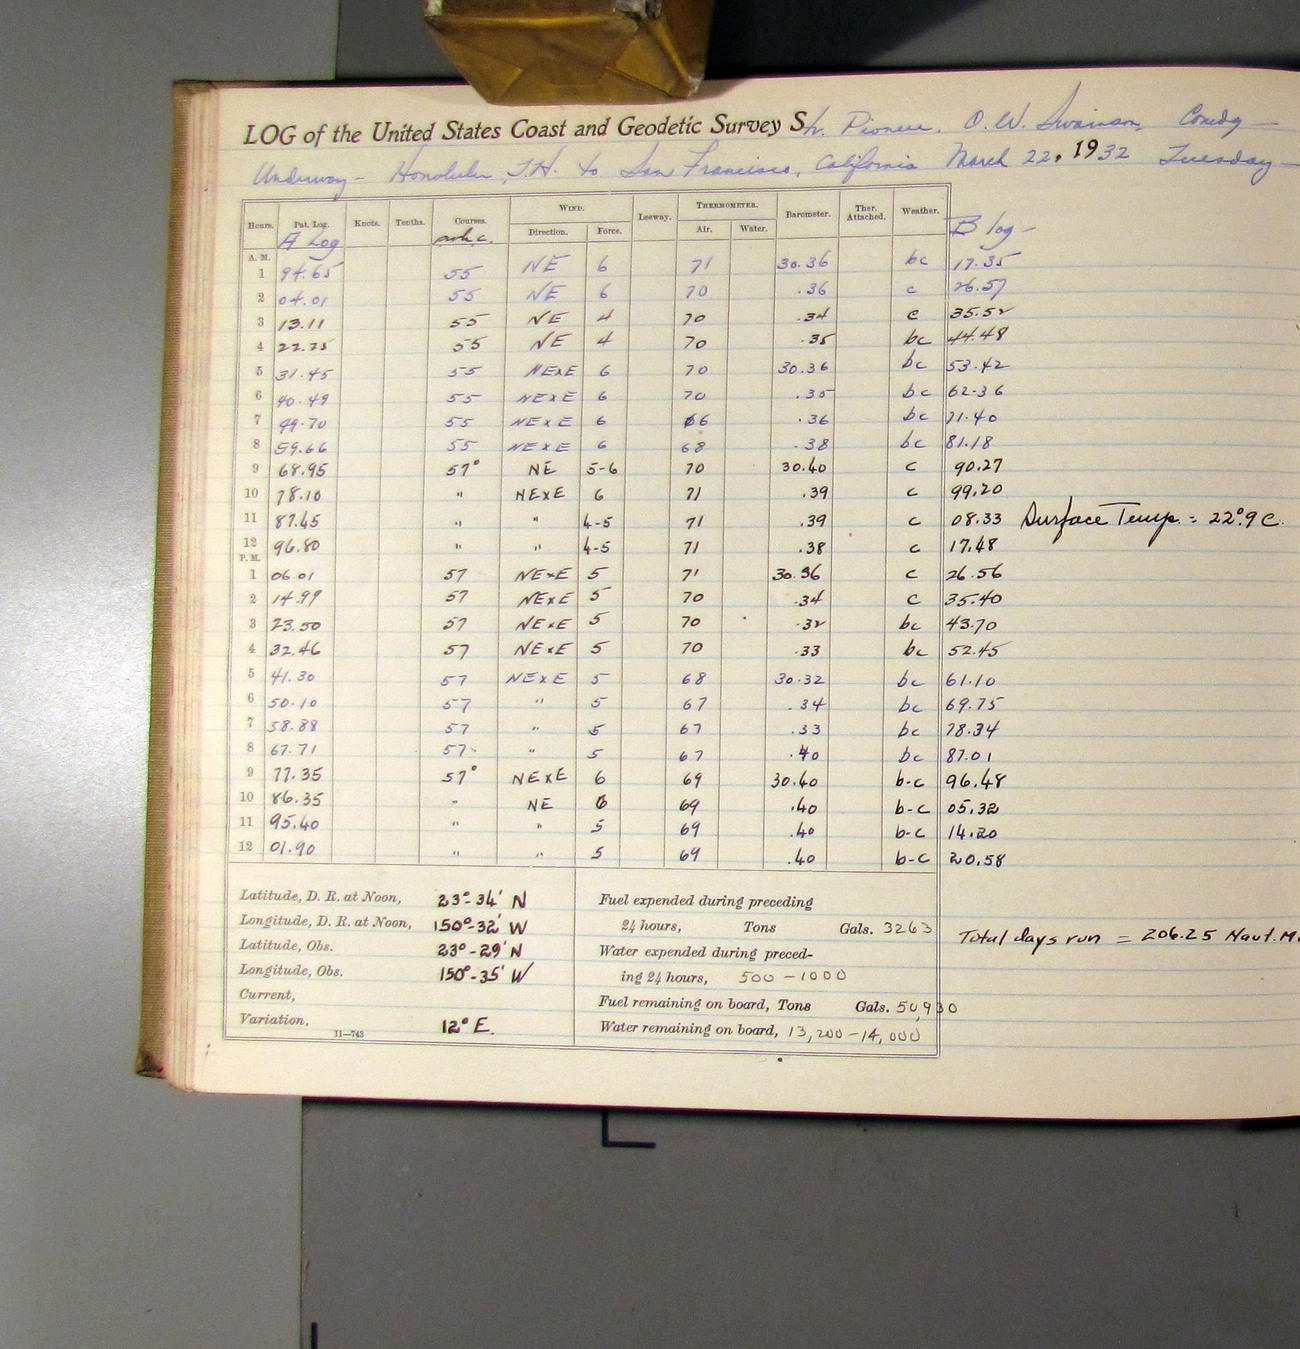 LOG of the United States Coast and Geodetic Survey Str. Pioneer, O.W. Swainson, Comdg —
Underway – Honolulu, T.H. to San Francisco, California March 22, 1932 Tuesday —
Hours. Pat. Log. Knots. Tenths. Courses. WIND. Leeway. THERMOMETER. Barometer. Ther. Attached. Weather.
A Log Direction. Force. Air. Water. B log –
A. M.
1 94.65 55 NE 6 71 30.36 bc 17.35
2 04.01 55 NE 6 70 .36 c 26.57
3 13.11 55 NE 4 70 .34 c 35.52
4 22.25 55 NE 4 70 .35 bc 44.48
5 31.45 55 NExE 6 70 30.36 bc 53.42
6 40.49 55 NExE 6 70 .35 bc 62.36
7 49.70 55 NExE 6 66 .36 bc 71.40
8 59.66 55 NExE 6 68 .38 bc 81.18
9 68.95 57° NE 5-6 70 30.40 c 90.27
10 78.10 " NExE 6 71 .39 c 99.20
11 87.45 " " 4-5 71 .39 c 08.33 Surface Temp. = 22°.9 C.
12 96.80 " " 4-5 71 .38 c 17.48
P. M.
1 06.01 57 NExE 5 71 30.36 c 26.56
2 14.99 57 NExE 5 70 .34 c 35.40
3 23.50 57 NExE 5 70 .32 bc 43.70
4 32.46 57 NExE 5 70 .33 bc 52.45
5 41.30 57 NExE 5 68 30.32 bc 61.10
6 50.10 57 " 5 67 .34 bc 69.75
7 58.88 57 " 5 67 .33 bc 78.34
8 67.71 57 " 5 67 .40 bc 87.01
9 77.35 57° NExE 6 69 30.40 b-c 96.48
10 86.35 " NE 6 69 .40 b-c 05.32
11 95.40 " " 5 69 .40 b-c 14.20
12 01.90 " " 5 69 .40 b-c 20.58
Latitude, D. R. at Noon, 23°-34' N
Longitude, D. R. at Noon, 150°-32' W
Latitude, Obs. 23°-29' N
Longitude, Obs. 150°-35' W
Current,
Variation, 12° E.
11—743
Fuel expended during preceding
24 hours, Tons Gals. 3263
Water expended during preced-
ing 24 hours, 500 – 1000
Fuel remaining on board, Tons Gals. 50,930
Water remaining on board, 13,200 – 14,000
Total days run = 206.25 Naut. Mi